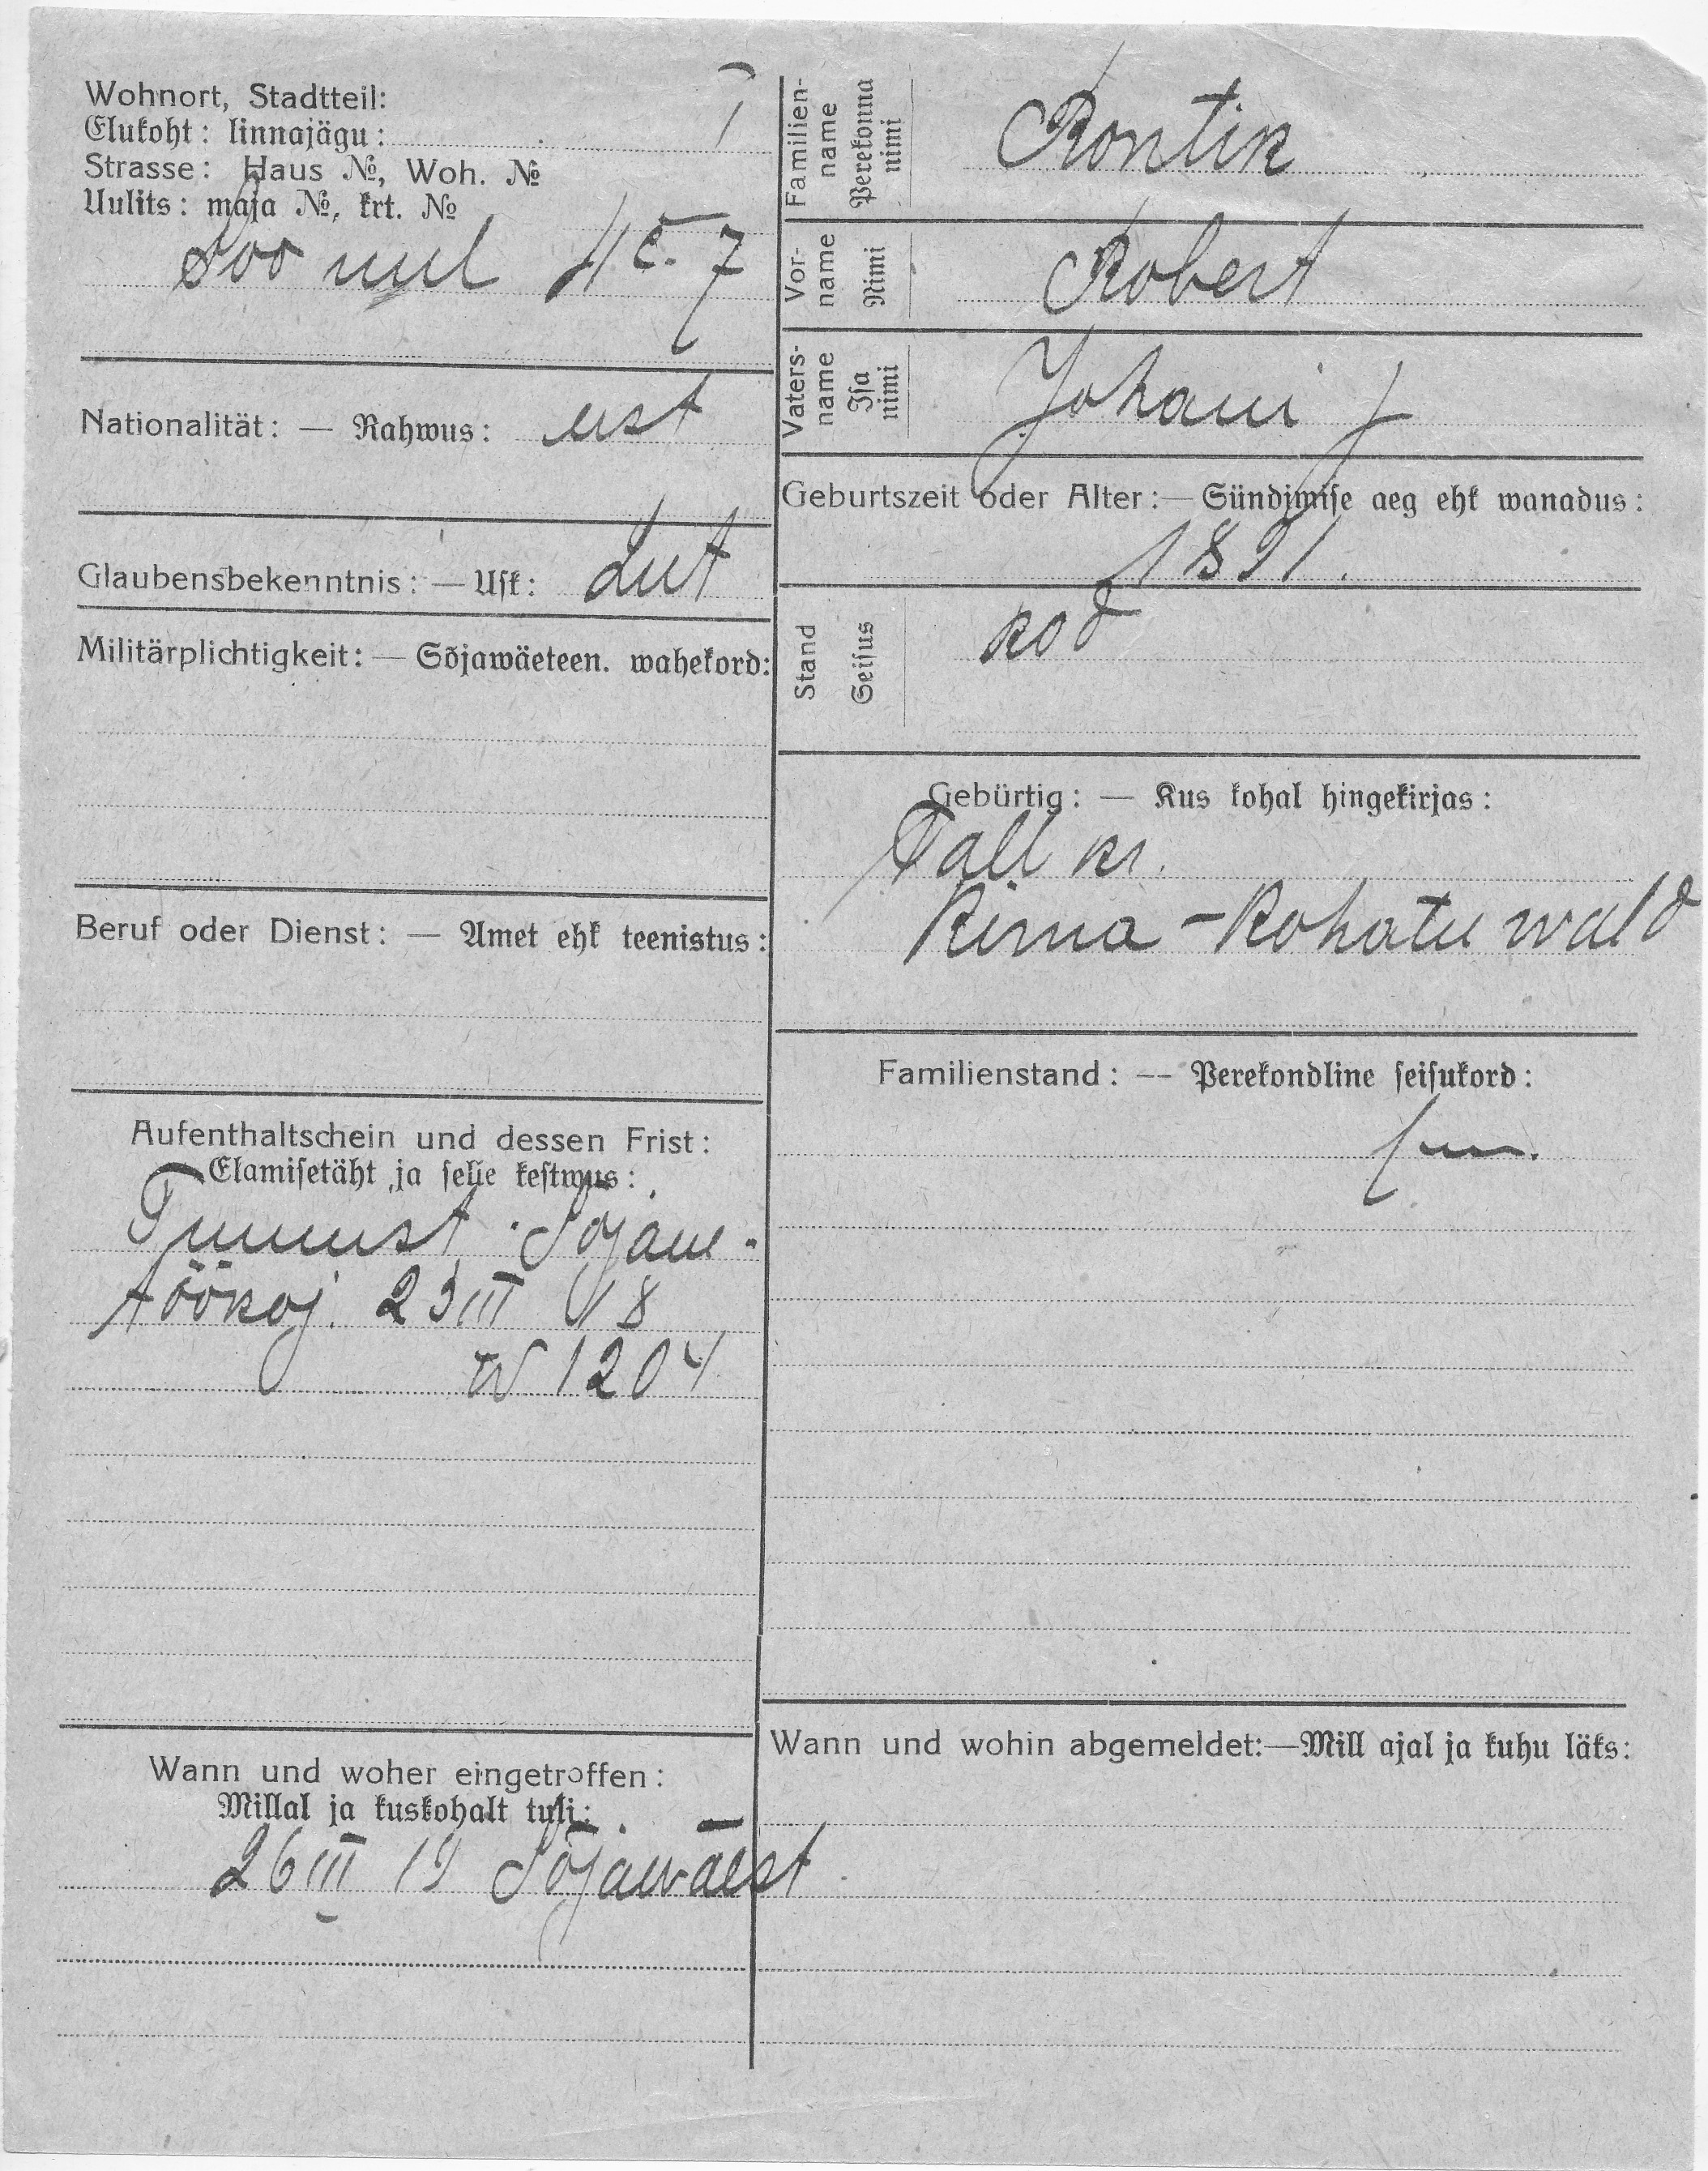 Wohnort, Stadtteil:
Elukoht: linnajägu: I
Strasse: Haus №, Woh. №
Uulits: maja №, krt. №
Soo uul 4 7
Nationalität: — Rahwus: eest
Glaubensbekenntnis: — Usk: Lut
Militärplichtigkeit: — Sõjawäeteen. wahekord:
Beruf oder Dienst: — Amet ehk teenistus:
Aufenthaltschein und dessen Frist:
Elamisetäht ja selle kestwus:
Tunnust. Sõjam.
töökoj. 23 III 18
№ 1204
Wann und woher eingetroffen:
Millal ja kuskohalt tuli:
26 III 19 Sõjawäest
Familien-name Perekonna nimi Rontik
Vor-name Nimi Robert
Vaters-name Isa nimi Johani p
Geburtszeit oder Alter: — Sündimise aeg ehk wanadus:
1891.
Stand Seisus kod
Gebürtig: — Kus kohal hingekirjas:
Tall kr.
Kirna-Kohatu wald
Familienstand: — Perekondline seisukord:
Wann und wohin abgemeldet: — Mill ajal ja kuhu läks: